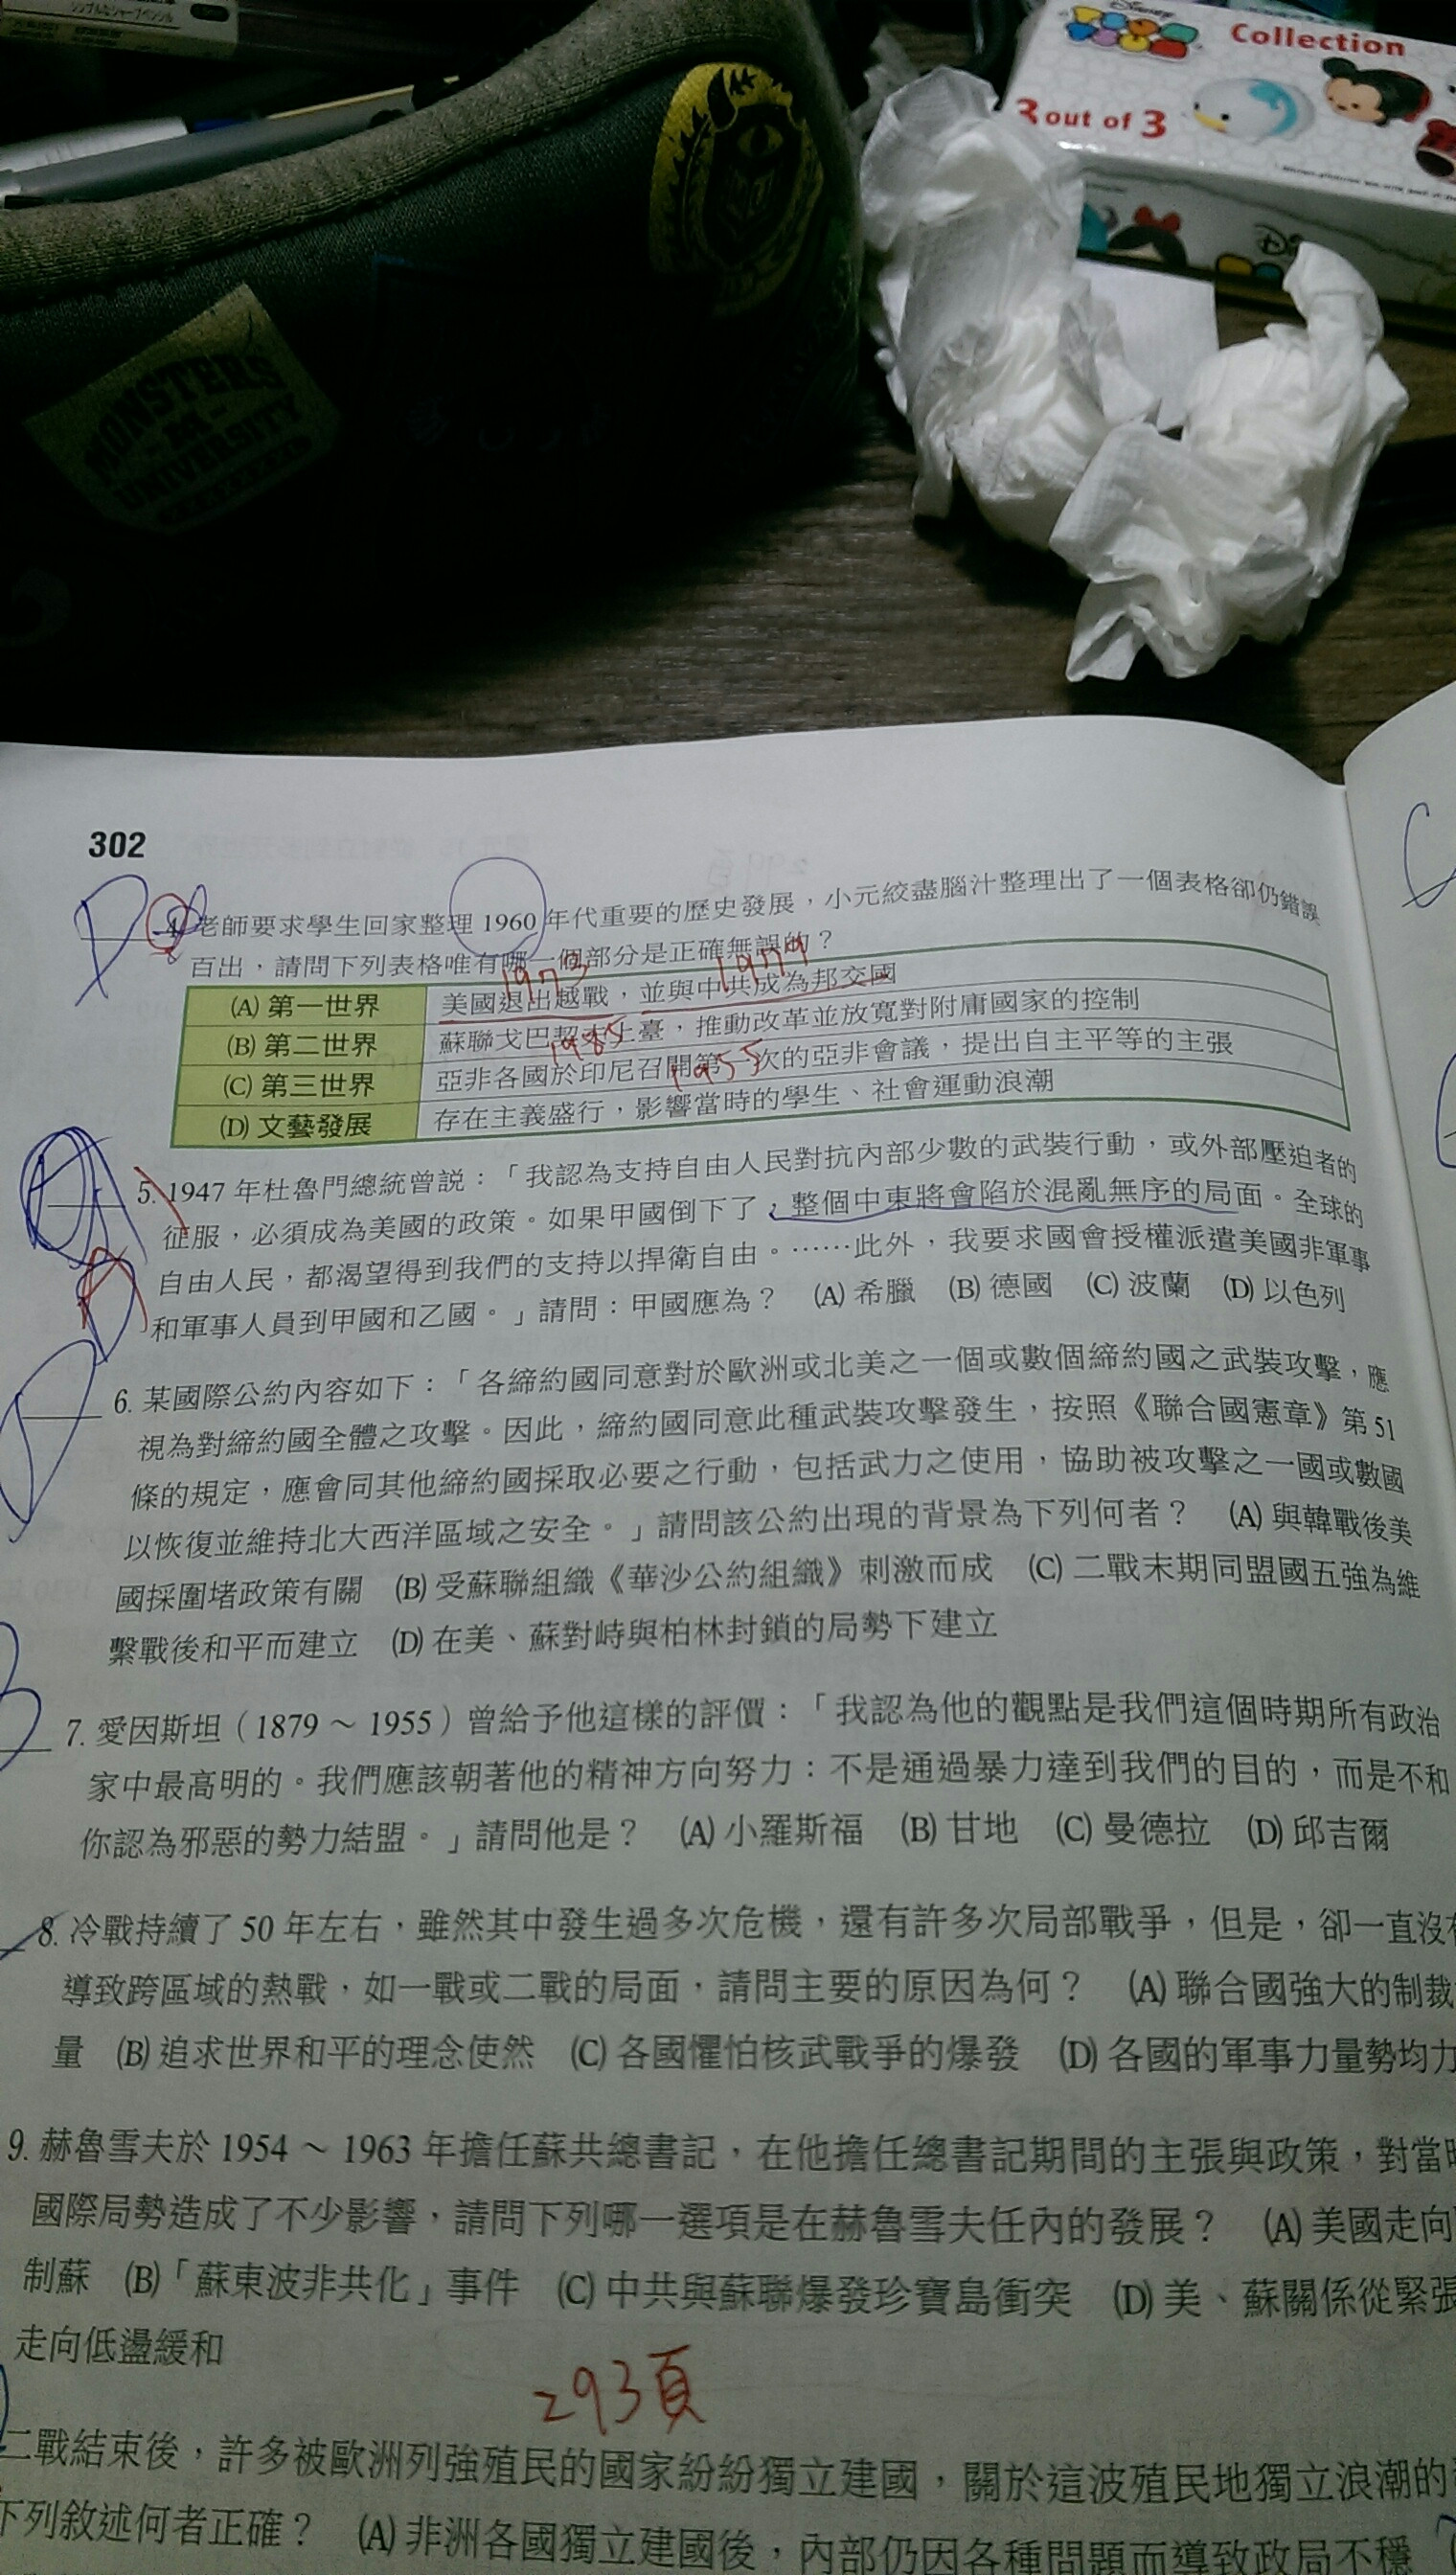 シンプルなシャープペンシル
Disney
Collection
3 out of 3
MONSTERS
UNIVERSITY
302
4. 老師要求學生回家整理 1960 年代重要的歷史發展，小元絞盡腦汁整理出了一個表格卻仍錯誤
百出，請問下列表格唯有哪一個部分是正確無誤的？
1973 1979
(A) 第一世界 美國退出越戰，並與中共成為邦交國
(B) 第二世界 蘇聯戈巴契夫上臺，推動改革並放寬對附庸國家的控制
1985
(C) 第三世界 亞非各國於印尼召開第一次的亞非會議，提出自主平等的主張
1955
(D) 文藝發展 存在主義盛行，影響當時的學生、社會運動浪潮
5. 1947 年杜魯門總統曾說：「我認為支持自由人民對抗內部少數的武裝行動，或外部壓迫者的
征服，必須成為美國的政策。如果甲國倒下了，整個中東將會陷於混亂無序的局面。全球的
自由人民，都渴望得到我們的支持以捍衛自由。……此外，我要求國會授權派遣美國非軍事
和軍事人員到甲國和乙國。」請問：甲國應為？ (A) 希臘 (B) 德國 (C) 波蘭 (D) 以色列
A
D
6. 某國際公約內容如下：「各締約國同意對於歐洲或北美之一個或數個締約國之武裝攻擊，應
視為對締約國全體之攻擊。因此，締約國同意此種武裝攻擊發生，按照《聯合國憲章》第 51
條的規定，應會同其他締約國採取必要之行動，包括武力之使用，協助被攻擊之一國或數國
以恢復並維持北大西洋區域之安全。」請問該公約出現的背景為下列何者？ (A) 與韓戰後美
國採圍堵政策有關 (B) 受蘇聯組織《華沙公約組織》刺激而成 (C) 二戰末期同盟國五強為維
繫戰後和平而建立 (D) 在美、蘇對峙與柏林封鎖的局勢下建立
B
7. 愛因斯坦（1879～1955）曾給予他這樣的評價：「我認為他的觀點是我們這個時期所有政治
家中最高明的。我們應該朝著他的精神方向努力：不是通過暴力達到我們的目的，而是不和
你認為邪惡的勢力結盟。」請問他是？ (A) 小羅斯福 (B) 甘地 (C) 曼德拉 (D) 邱吉爾
8. 冷戰持續了 50 年左右，雖然其中發生過多次危機，還有許多次局部戰爭，但是，卻一直沒有
導致跨區域的熱戰，如一戰或二戰的局面，請問主要的原因為何？ (A) 聯合國強大的制裁
量 (B) 追求世界和平的理念使然 (C) 各國懼怕核武戰爭的爆發 (D) 各國的軍事力量勢均力
9. 赫魯雪夫於 1954～1963 年擔任蘇共總書記，在他擔任總書記期間的主張與政策，對當時
國際局勢造成了不少影響，請問下列哪一選項是在赫魯雪夫任內的發展？ (A) 美國走向
制蘇 (B)「蘇東波非共化」事件 (C) 中共與蘇聯爆發珍寶島衝突 (D) 美、蘇關係從緊張
走向低盪緩和
293頁
二戰結束後，許多被歐洲列強殖民的國家紛紛獨立建國，關於這波殖民地獨立浪潮的
下列敘述何者正確？ (A) 非洲各國獨立建國後，內部仍因各種問題而導致政局不穩